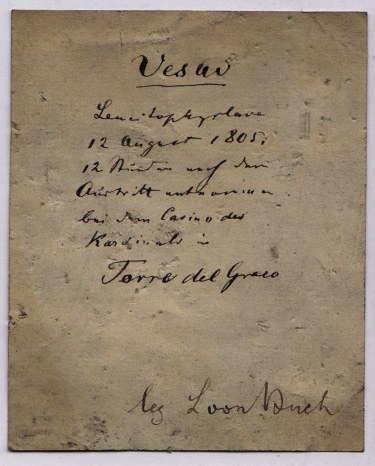 Vesuv
Leucitophyrlava
12 August 1805,
12 Stunden nach dem
Austritt entnommen
bei dem Casino des
Kardinals in
Torre del Greco
leg L von Buch